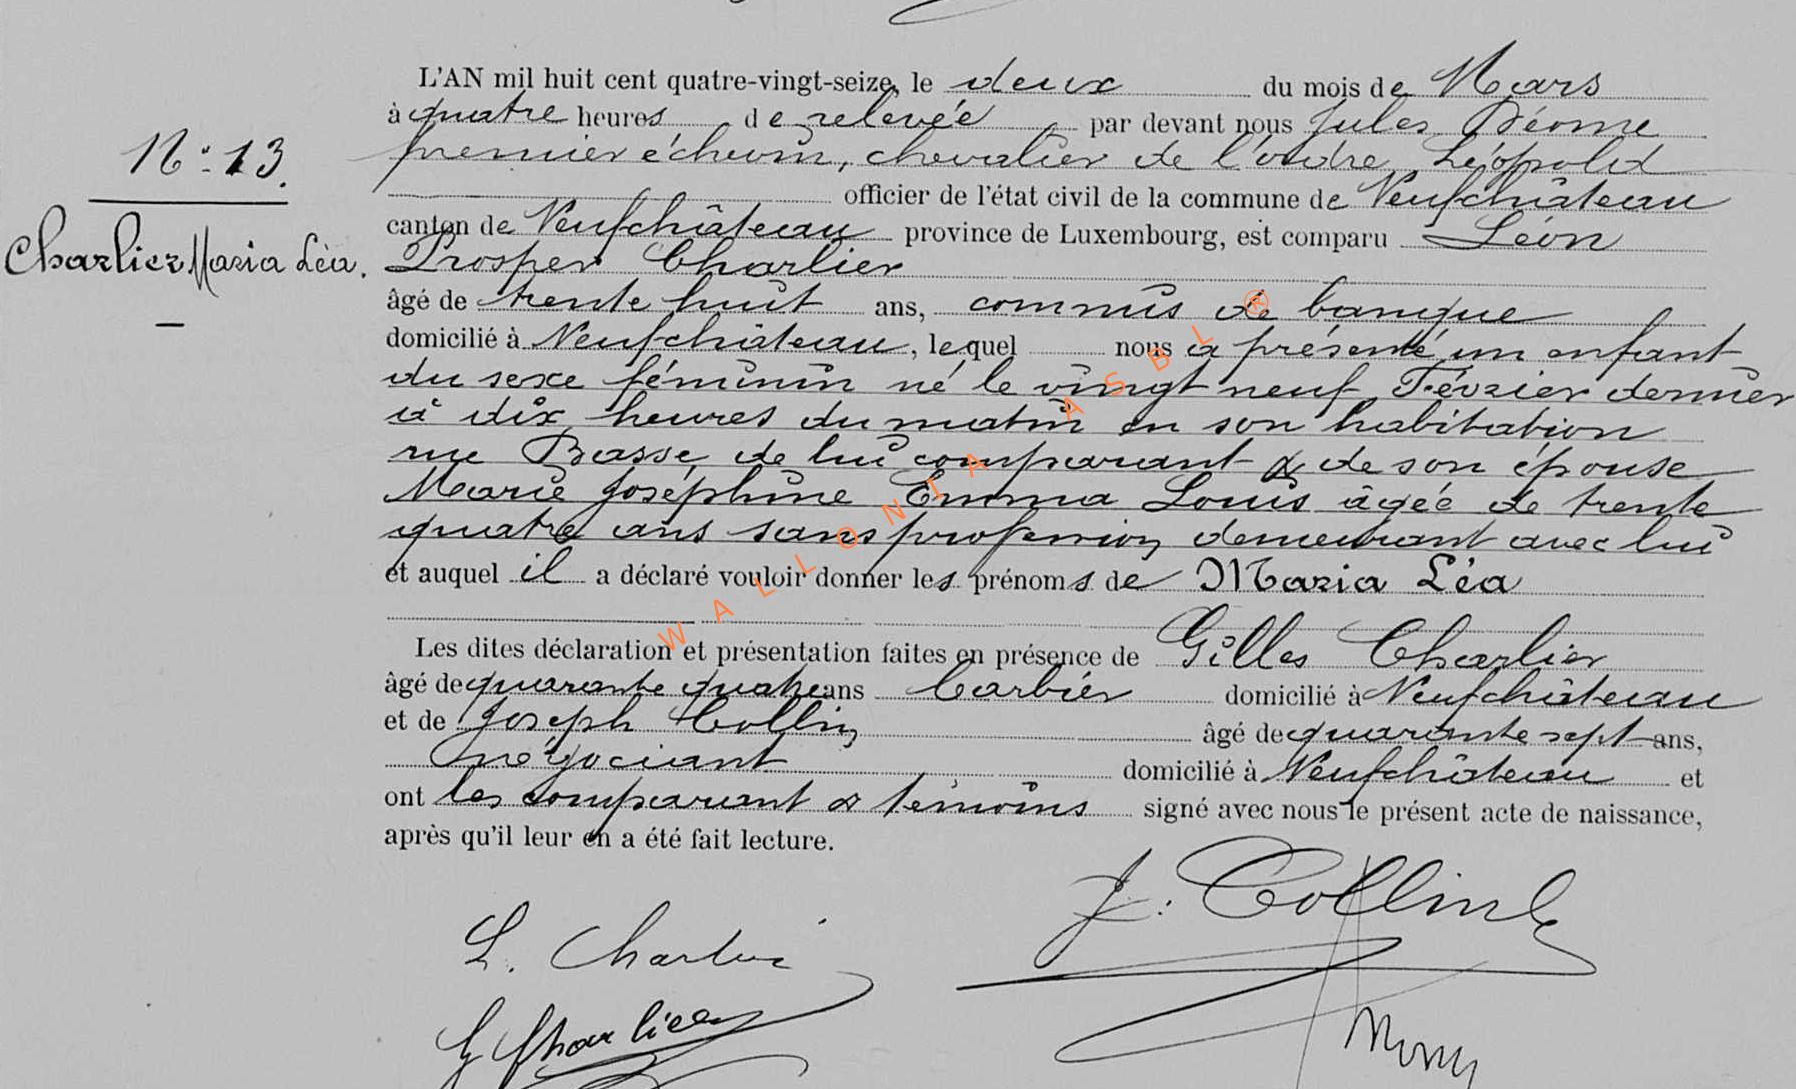 L'AN mil huit cent quatre-vingt-seize, le deux du mois de Mars
à quatre heures de relevée par devant nous Jules
premier échevin, chevalier de l'ordre Léopold
officier de l'état civil de la commune de Neufchâteau
canton de Neufchâteau province de Luxembourg, est comparu Léon
Prosper Charlier
âgé de trente huit ans, commis de banque
domicilié à Neufchâteau, lequel nous a présenté un enfant
du sexe féminin né le vingt neuf Février dernier
à dix heures du matin en son habitation
rue Basse, de lui comparant & de son épouse
Marie Joséphine Emma Louis âgée de trente
quatre ans sans profession demeurant avec lui
et auquel il a déclaré vouloir donner les prénoms de Maria Léa
Les dites déclaration et présentation faites en présence de Gilles Charlier
âgé de quarante quatre ans barbier domicilié à Neufchâteau
et de Joseph Collin âgé de quarante sept ans,
négociant domicilié à Neufchâteau et
ont les comparant & témoins signé avec nous le présent acte de naissance,
après qu'il leur en a été fait lecture.
N° 13.
Charlier Maria Léa.
L. Charlier
J. Collin
G Charlier
WALLONIA ASBL ®